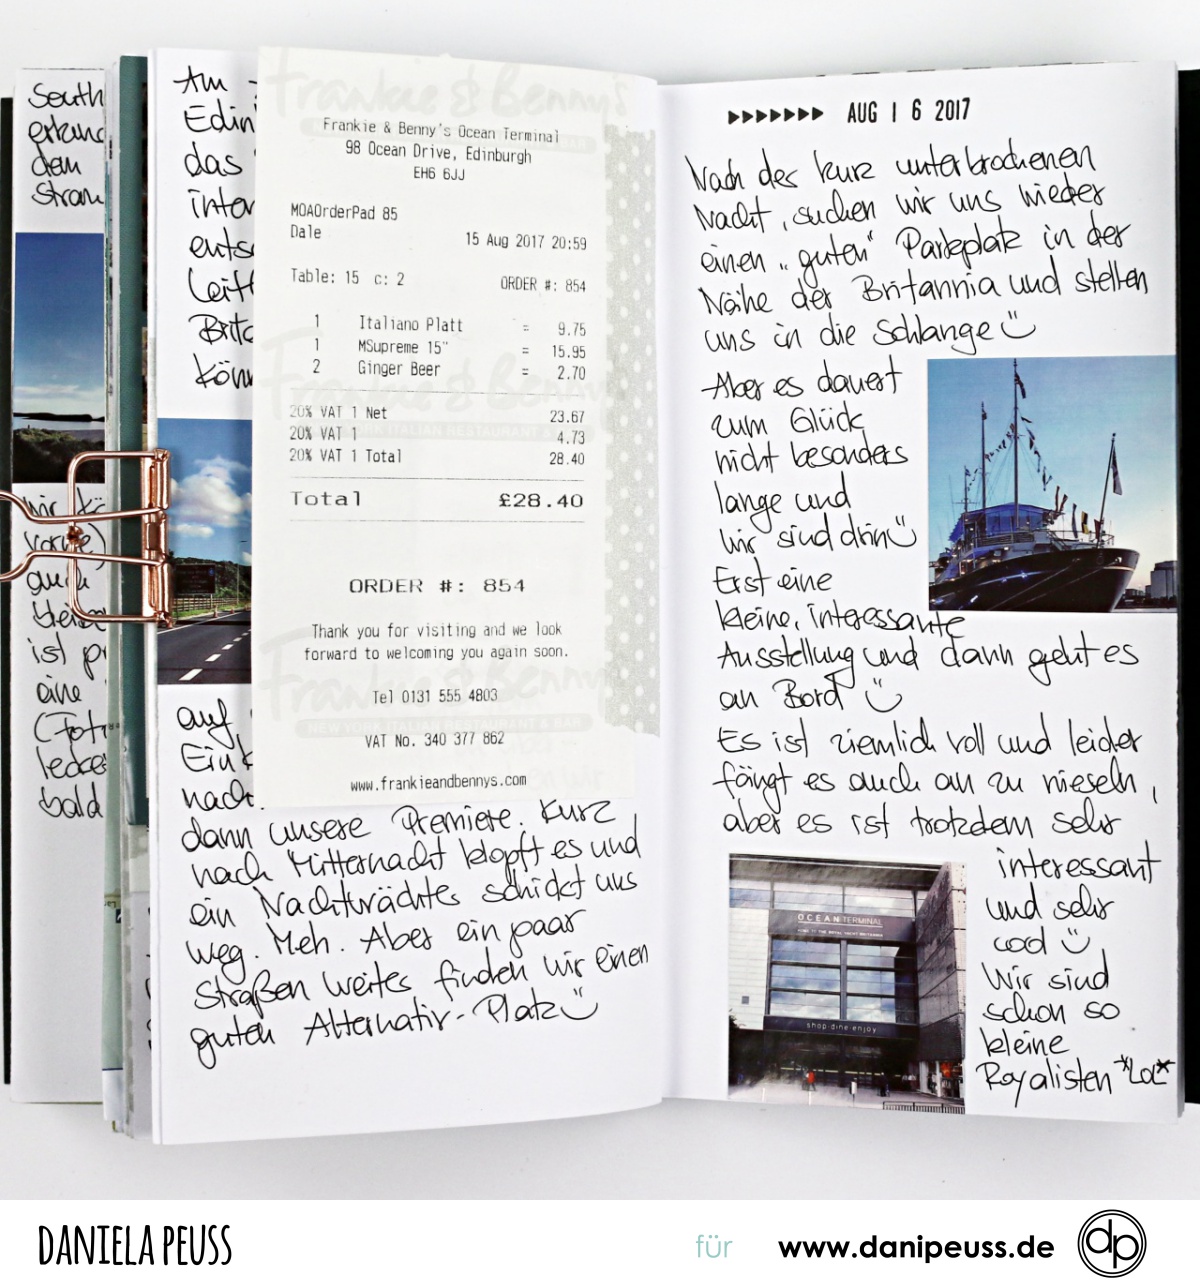 South
dem
Am
Edin
das
inter
entsc
Leith
Brita
könn
auf
Eink
nach
dann unsere Premiere. Kurz
nach Mitternacht klopft es und
ein Nachtwächter schickt uns
weg. Meh. Aber ein paar
Straßen weiter finden wir einen
guten Alternativ-Platz
Frankie & Benny's
Frankie & Benny's Ocean Terminal
98 Ocean Drive, Edinburgh
EH6 6JJ
MOAOrderPad 85
Dale 15 Aug 2017 20:59
Table: 15 c: 2 ORDER #: 854
1 Italiano Platt = 9.75
1 MSupreme 15" = 15.95
2 Ginger Beer = 2.70
20% VAT 1 Net 23.67
20% VAT 1 4.73
20% VAT 1 Total 28.40
Total £28.40
ORDER #: 854
Thank you for visiting and we look
forward to welcoming you again soon.
Tel 0131 555 4803
Frankie & Benny's
NEW YORK ITALIAN RESTAURANT & BAR
VAT No. 340 377 862
www.frankieandbennys.com
AUG 16 2017
Nach der kurz unterbrochenen
Nacht, suchen wir uns wieder
einen „guten“ Parkplatz in der
Nähe der Britannia und stellen
uns in die Schlange
Aber es dauert
zum Glück
nicht besonders
lange und
wir sind drin
Erst eine
kleine, interessante
Ausstellung und dann geht es
an Bord
Es ist ziemlich voll und leider
fängt es auch an zu nieseln,
aber es ist trotzdem sehr
interessant
und sehr
cool
Wir sind
schon so
kleine
Royalisten *LOL*
OCEAN TERMINAL
shop·dine·enjoy
DANIELA PEUSS für www.danipeuss.de dp